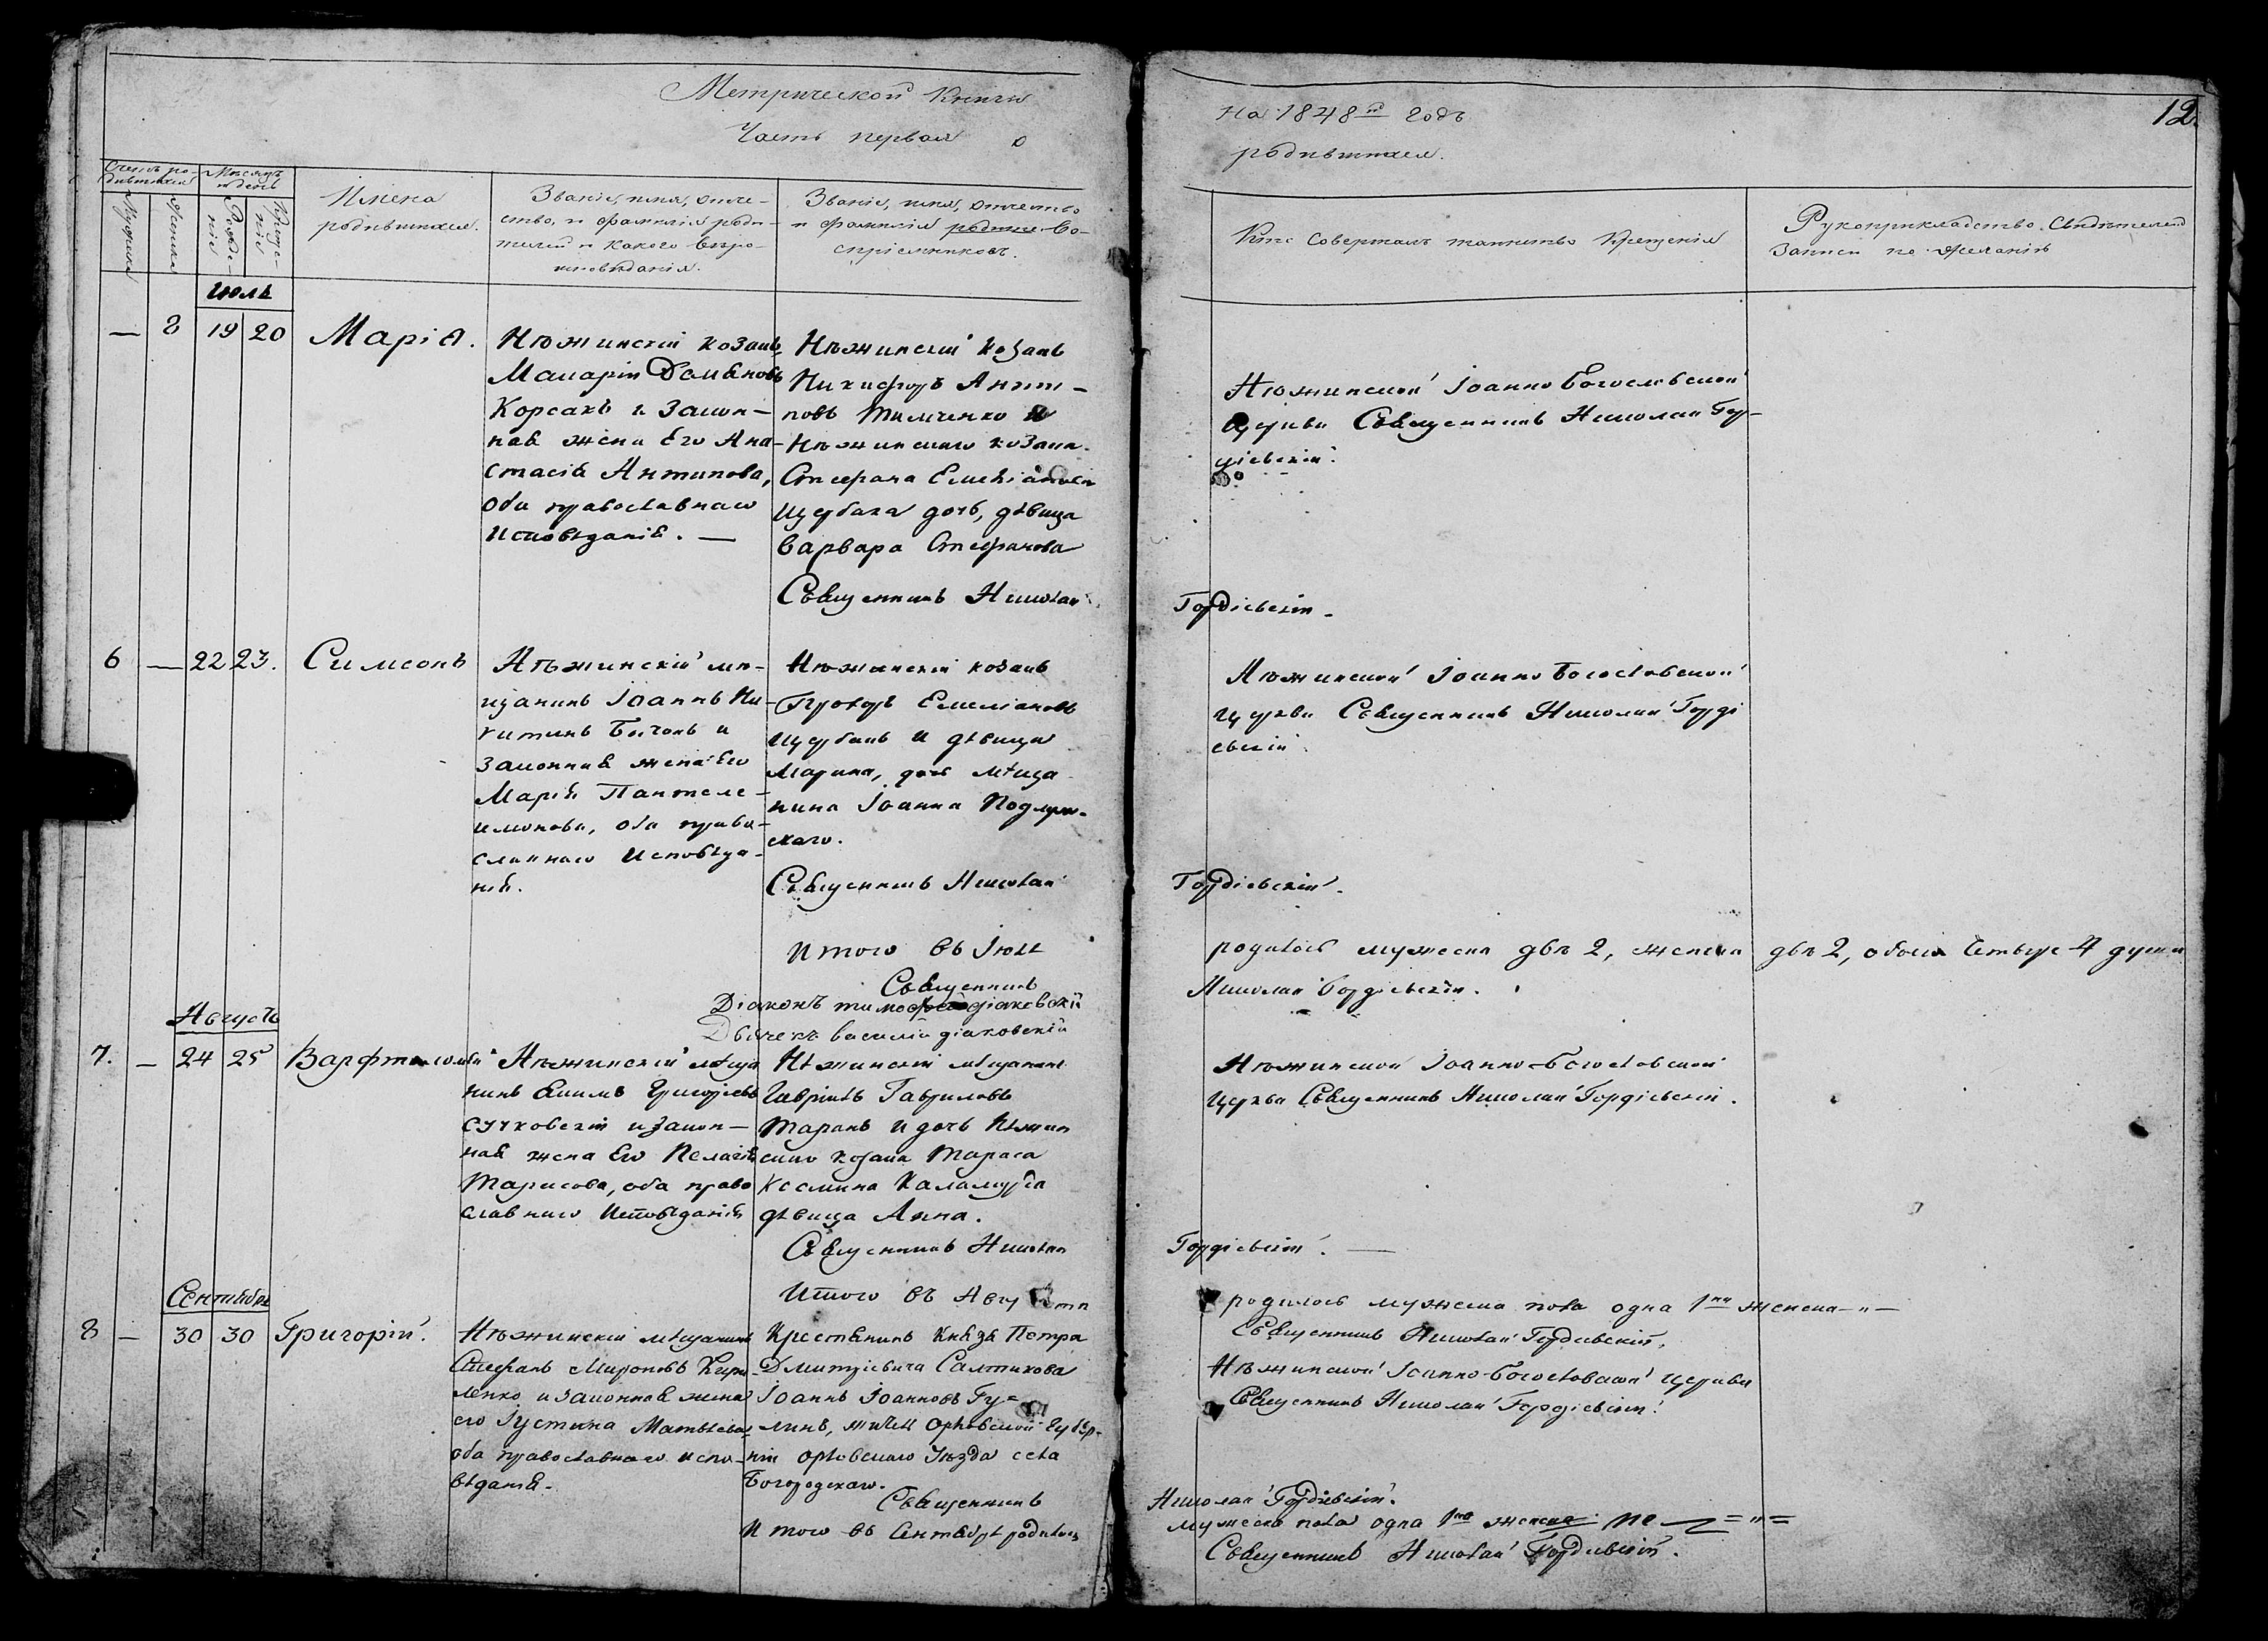 Метрической Книги
Часть первая о
на 1848й годъ
родившихся.
12.
Счетъ ро-
дившихся
Мѣсяцъ
и день
Мужеска
Женска
Рожде-
нія
Креще-
нія
Имена
родившихся.
Званіе, имя, отче-
ство, и фамилія роди-
телей и какого вѣро-
исповѣданія.
Званіе, имя, отчество
и фамилія родшіе Во-
спріемниковъ.
Кто Совершалъ таинство Крещенія
Рукоприкладство Свидѣтелей
Записи по желанію
Июль
— 8 19 20 Марія.
Нѣжинскій козакъ
Макарій Доміановъ
Корсакъ и Закон-
ная жена Его Ана-
стасія Антипова,
оба православнаго
Исповѣданія. —
Нѣжинскій козакъ
Никифоръ Антип-
повъ Тимченко и
Нѣжинскаго козака
Стефана Емеліанова
Щербака дочь, дѣвица
Варвара Стефанова
Священникъ Николай
Нѣжинской Іоанно Богословской
Церкви Священникъ Николай Гор-
діевскій.
Гордіевскій.
6 — 22 23. Симеонъ
Нѣжинскій мѣ-
щанинъ Іоаннъ Ни-
китинъ Бычокъ и
Законная жена Его
Марія Пантеле-
имонова, оба право-
славнаго Исповѣда-
нія.
Нѣжинскій козакъ
Прохоръ Емеліановъ
Щербакъ и дѣвица
Марина, дочь мѣща
нина Іоанна Подлип-
скаго.
Священникъ Николай
Нѣжинской Іоанно Богословской
церкви Священникъ Николай Горді
евскій
Гордіевскій.
Итого въ Іюлѣ
родилось мужеска двѣ 2, женска двѣ 2, обоихъ Четыре 4 души
Священникъ
Николай Гордіевскій.
Діаконъ тимофей діаковскій
Дьячекъ василій діаковскій
Августъ
7. — 24 25 Варфоломей
Нѣжинскій мѣща
нинъ Екимъ Григорьевъ
Сучковскій и закон-
ная жена Его Пелагія
Тарасова, оба право
славнаго Исповѣданія
Нѣжинскій мѣщанинъ
Гавріилъ Гавриловъ
Таранъ и дочь Нѣжин
скаго козака Тараса
Космина Каламурза
дѣвица Анна.
Священникъ Николай
Нѣжинской Іоанно-Богословской
Церкви Священникъ Николай Гордіевскій.
Гордіевскій. —
Итого въ Августѣ
родилось мужеска пола одна 1на женска — " —
Священникъ Николай Гордіевскій.
Сентябрь
8 — 30 30 Григорій.
Нѣжинскій мѣщанинъ
Стефанъ Мироновъ Кири-
ленко и законная жена
его Іустина Матвѣева
оба православнаго испо-
вѣданія.
Крестьянинъ Князя Петра
Дмитріевича Салтикова
Іоаннъ Іоанновъ Гу=
линъ, житель Орловской Губер-
ніи Орловскаго Уѣзда села
Богородскаго.
Священникъ
Нѣжинской Іоанно-Богословской церкви
Священникъ Николай Гордіевскій.
Николай Гордіевскій.
Итого въ Сентябрѣ родилось
мужеска пола одна 1на женска не = " =
Священникъ Николай Гордіевскій.